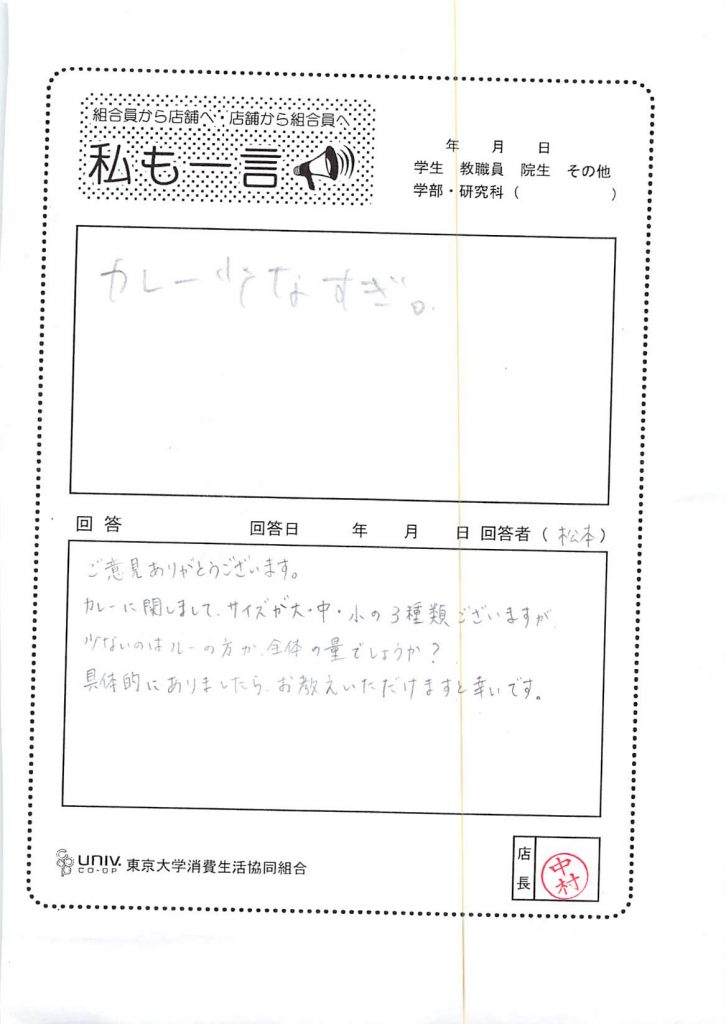 組合員から店舗へ・店舗から組合員へ
私も一言
年 月 日
学生 教職員 院生 その他
学部・研究科( )
カレー少なすぎ。
回答 回答日 年 月 日 回答者(松本)
ご意見ありがとうございます。
カレーに関しまして、サイズが大・中・小の3種類ございますが、
少ないのはルーの方か、全体の量でしょうか?
具体的にありましたら、お教えいただけますと幸いです。
UNIV. CO-OP 東京大学消費生活協同組合
店長
中村